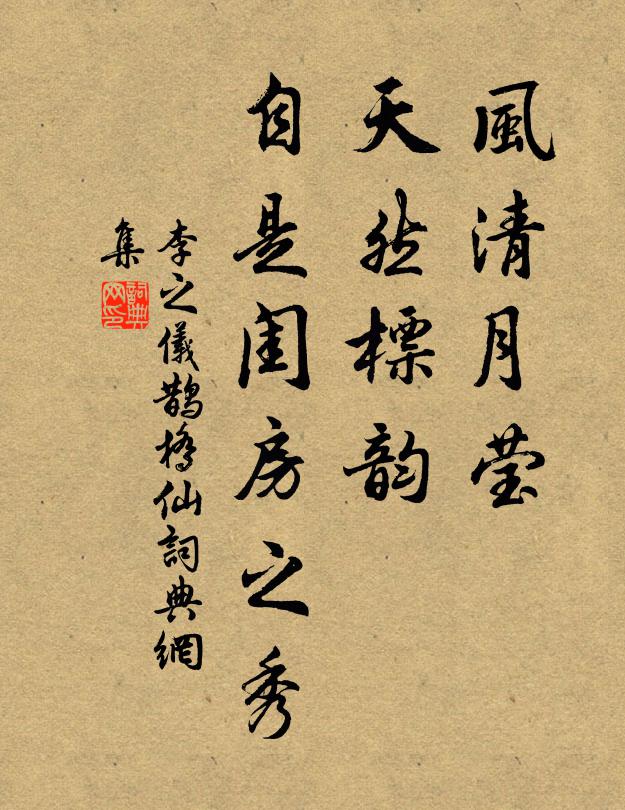 風清月莹
天然標韵
自是闺房之秀
李之儀鵲橋仙詞典網
集
詞典
网印